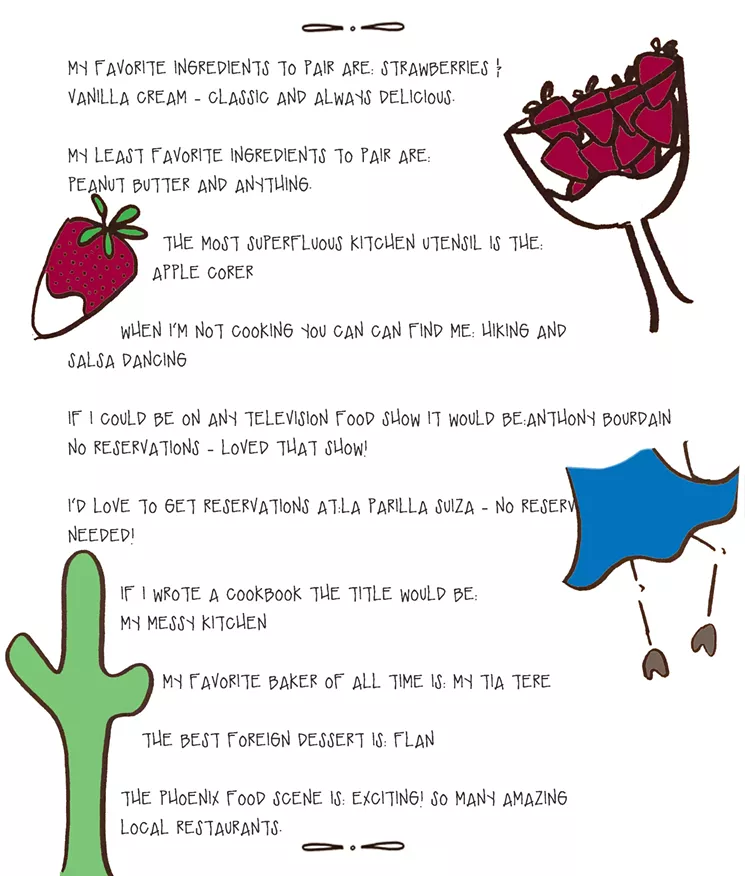 MY FAVORITE INGREDIENTS TO PAIR ARE: STRAWBERRIES &
VANILLA CREAM - CLASSIC AND ALWAYS DELICIOUS.
MY LEAST FAVORITE INGREDIENTS TO PAIR ARE:
PEANUT BUTTER AND ANYTHING.
THE MOST SUPERFLUOUS KITCHEN UTENSIL IS THE:
APPLE CORER
WHEN I'M NOT COOKING YOU CAN CAN FIND ME: HIKING AND
SALSA DANCING
IF I COULD BE ON ANY TELEVISION FOOD SHOW IT WOULD BE:ANTHONY BOURDAIN
NO RESERVATIONS - LOVED THAT SHOW!
I'D LOVE TO GET RESERVATIONS AT:LA PARILLA SUIZA - NO RESERV
NEEDED!
IF I WROTE A COOKBOOK THE TITLE WOULD BE:
MY MESSY KITCHEN
MY FAVORITE BAKER OF ALL TIME IS: MY TIA TERE
THE BEST FOREIGN DESSERT IS: FLAN
THE PHOENIX FOOD SCENE IS: EXCITING! SO MANY AMAZING
LOCAL RESTAURANTS.